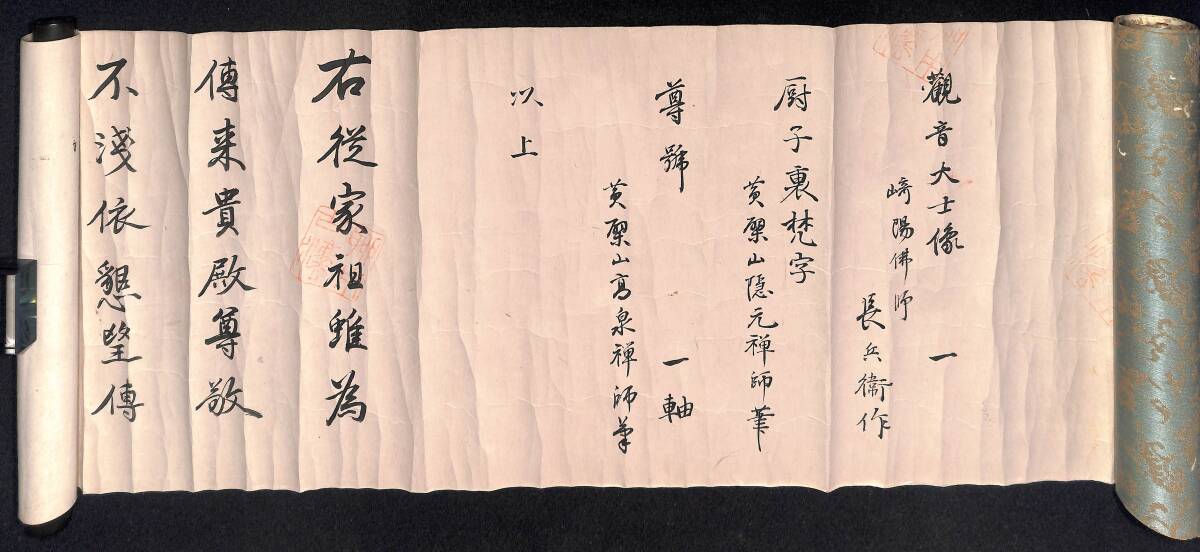 觀音大士像 一
崎陽佛師
長兵衞作
厨子裏梵字
黄檗山隠元禅師筆
尊號 一軸
黄檗山高泉禅師筆
以上
右従家祖雖為
傳来貴殿尊敬
不淺依懇望傳